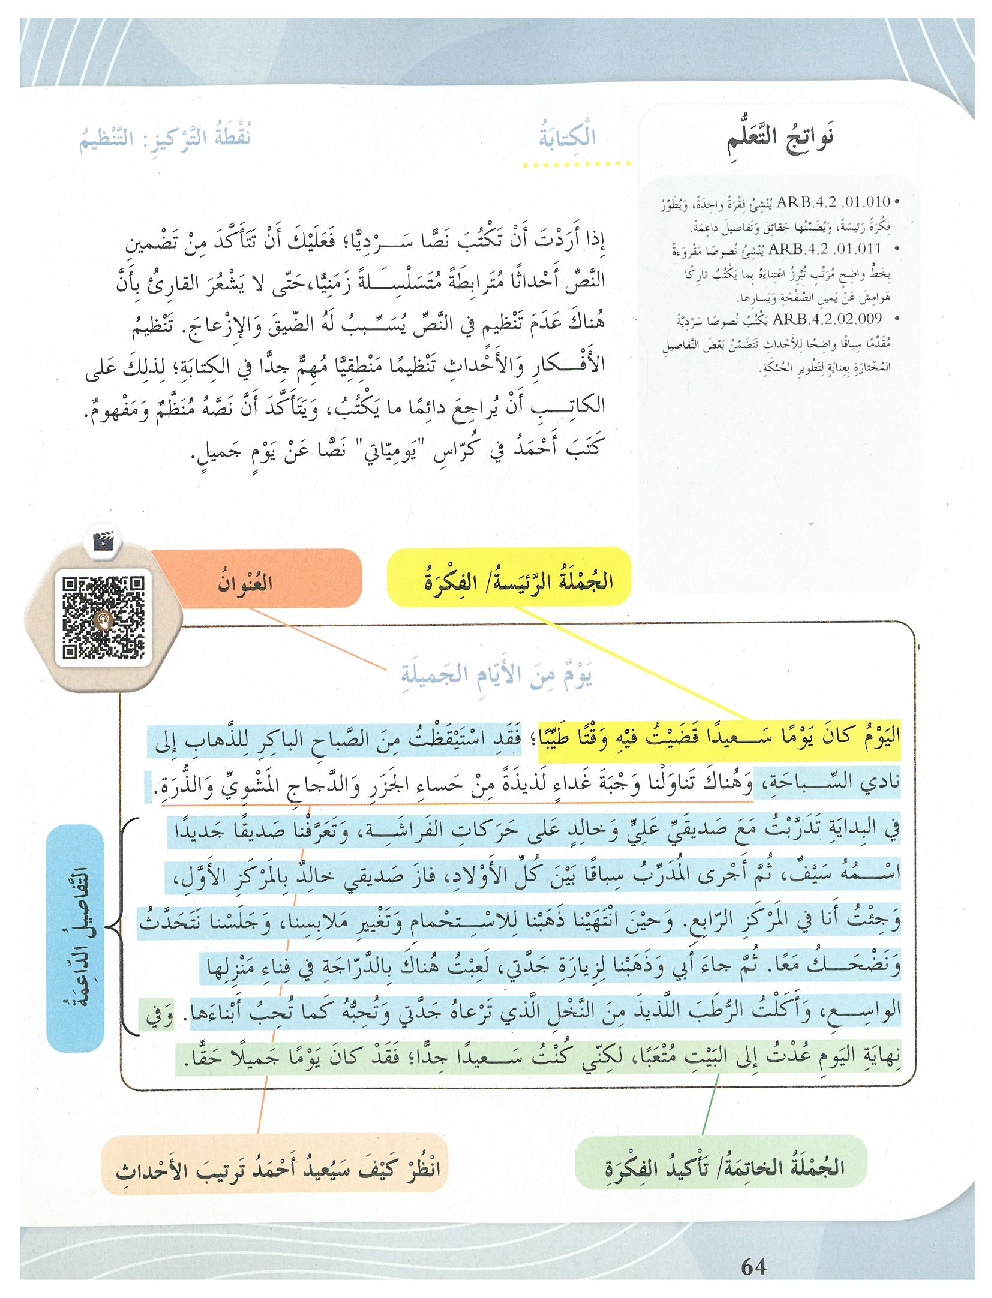 نَواتِجُ التَّعَلُّمِ
• ARB.4.2 .01.010 يُنْشِئُ فِقْرَةً واحِدَةً، وَيُطَوِّرُ
فِكْرَةً رَئيسَةً، وَيُضَمِّنُها حَقائِقَ وَتَفاصيلَ داعِمَةً.
• ARB.4.2 .01.011 يُنْشِئُ نُصوصًا مَقْروءَةً
بِخَطٍّ واضِحٍ مُرَتَّبٍ تُبْرِزُ اعْتِناءَهُ بِما يَكْتُبُ تارِكًا
هَوامِشَ عَنْ يَمينِ الصَّفْحَةِ وَيَسارِها.
• ARB.4.2.02.009 يَكْتُبُ نُصوصًا سَرْدِيَّةً
مُقَدِّمًا سِياقًا واضِحًا لِلأَحْداثِ تَتَضَمَّنُ بَعْضَ التَّفاصيلِ
المُخْتارَةِ بِعِنايَةٍ لِتَطْويرِ الحَبْكَةِ.
الْكِتابَةُ
نُقْطَةُ التَّرْكيزِ: التَّنْظيمُ
إِذا أَرَدْتَ أَنْ تَكْتُبَ نَصًّا سَرْدِيًّا؛ فَعَلَيْكَ أَنْ تَتَأَكَّدَ مِنْ تَضْمينِ
النَّصِّ أَحْداثًا مُتَرابِطَةً مُتَسَلْسِلَةً زَمَنِيًّا،حَتّى لا يَشْعُرَ القارِئُ بِأَنَّ
هُناكَ عَدَمَ تَنْظيمٍ في النَّصِّ يُسَبِّبُ لَهُ الضّيقَ وَالإِزْعاجَ. تَنْظيمُ
الأَفْكارِ وَالأَحْداثِ تَنْظيمًا مَنْطِقِيًّا مُهِمٌّ جِدًّا في الكِتابَةِ؛ لِذلِكَ عَلى
الكاتِبِ أَنْ يُراجِعَ دائِمًا ما يَكْتُبُ، وَيَتَأَكَّدَ أَنَّ نَصَّهُ مُنَظَّمٌ وَمَفْهومٌ.
كَتَبَ أَحْمَدُ في كُرّاسِ "يَومِيّاتي" نَصًّا عَنْ يَوْمٍ جَميلٍ.
الجُمْلَةُ الرَّئيسَةُ/ الفِكْرَةُ
العُنْوانُ
يَوْمٌ مِنَ الأَيّامِ الجَميلَةِ
اليَوْمُ كانَ يَوْمًا سَعيدًا قَضَيْتُ فيهِ وَقْتًا طَيِّبًا؛ فَقَدِ اسْتَيْقَظْتُ مِنَ الصَّباحِ الباكِرِ لِلذَّهابِ إِلى
نادي السِّباحَةِ، وَهُناكَ تَناوَلْنا وَجْبَةَ غَداءٍ لَذيذَةً مِنْ حَساءِ الجَزَرِ وَالدَّجاجِ المَشْوِيِّ وَالذُّرَةِ.
في البِدايَةِ تَدَرَّبْتُ مَعَ صَديقَيَّ عَلِيٍّ وَخالِدٍ عَلى حَرَكاتِ الفَراشَةِ، وَتَعَرَّفْنا صَديقًا جَديدًا
اسْمُهُ سَيْفٌ، ثُمَّ أَجْرى المُدَرِّبُ سِباقًا بَيْنَ كُلِّ الأَوْلادِ، فازَ صَديقي خالِدٌ بِالمَرْكَزِ الأَوَّلِ،
وَجِئْتُ أَنا في المَرْكَزِ الرّابِعِ. وَحينَ انْتَهَيْنا ذَهَبْنا لِلاسْتِحْمامِ وَتَغْييرِ مَلابِسِنا، وَجَلَسْنا نَتَحَدَّثُ
وَنَضْحَكُ مَعًا. ثُمَّ جاءَ أَبي وَذَهَبْنا لِزِيارَةِ جَدَّتي، لَعِبْتُ هُناكَ بِالدَّرّاجَةِ في فِناءِ مَنْزِلِها
الواسِعِ، وَأَكَلْتُ الرُّطَبَ اللَّذيذَ مِنَ النَّخْلِ الَّذي تَرْعاهُ جَدَّتي وَتُحِبُّهُ كَما تُحِبُّ أَبْناءَها. وَفي
نِهايَةِ اليَومِ عُدْتُ إِلى البَيْتِ مُتْعَبًا، لكِنّي كُنْتُ سَعيدًا جِدًّا؛ فَقَدْ كانَ يَوْمًا جَميلًا حَقًّا.
التَّفاصيلُ الدّاعِمَةُ
الجُمْلَةُ الخاتِمَةُ/ تَأْكيدُ الفِكْرَةِ
انْظُرْ كَيْفَ سَيُعيدُ أَحْمَدُ تَرتيبَ الأَحْداثِ
64